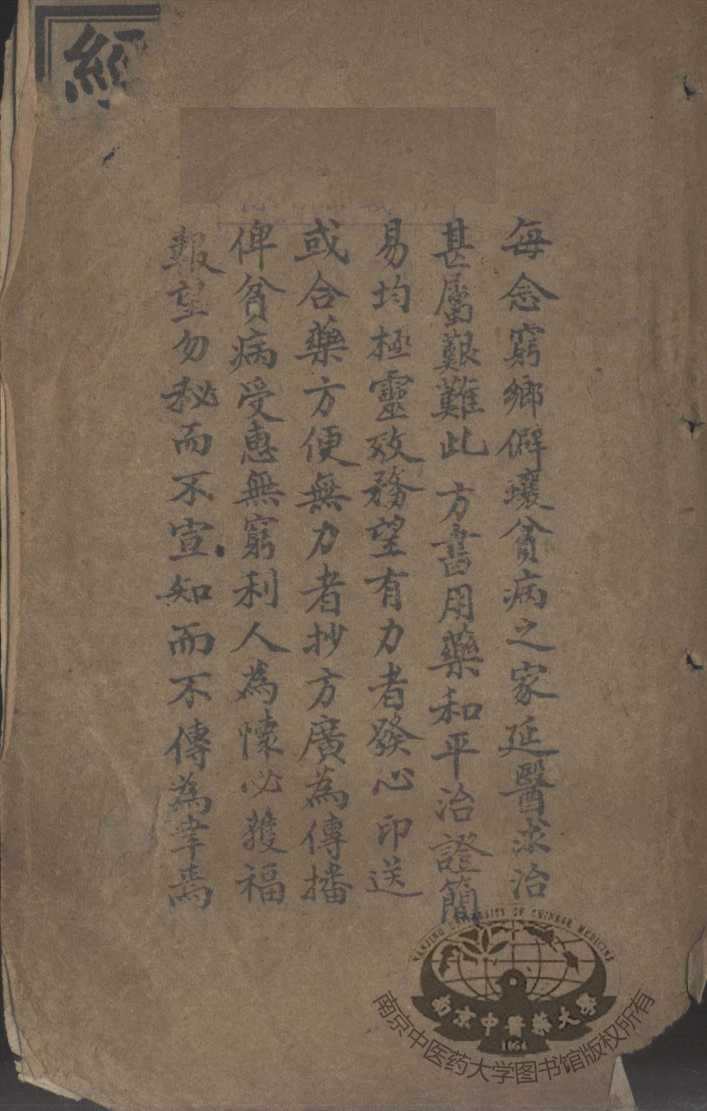 每念窮鄉僻壤貧病之家延醫求治
甚屬艱難此方書用藥和平治證簡
易均極靈效務望有力者發心印送
或合藥方便無力者抄方廣為傳播
俾貧病受惠無窮利人為懷必獲福
報望勿秘而不宣知而不傳為幸焉
經
NANJING UNIVERSITY OF CHINESE MEDICINE
南京中醫藥大學
1954
南京中医药大学图书馆版权所有